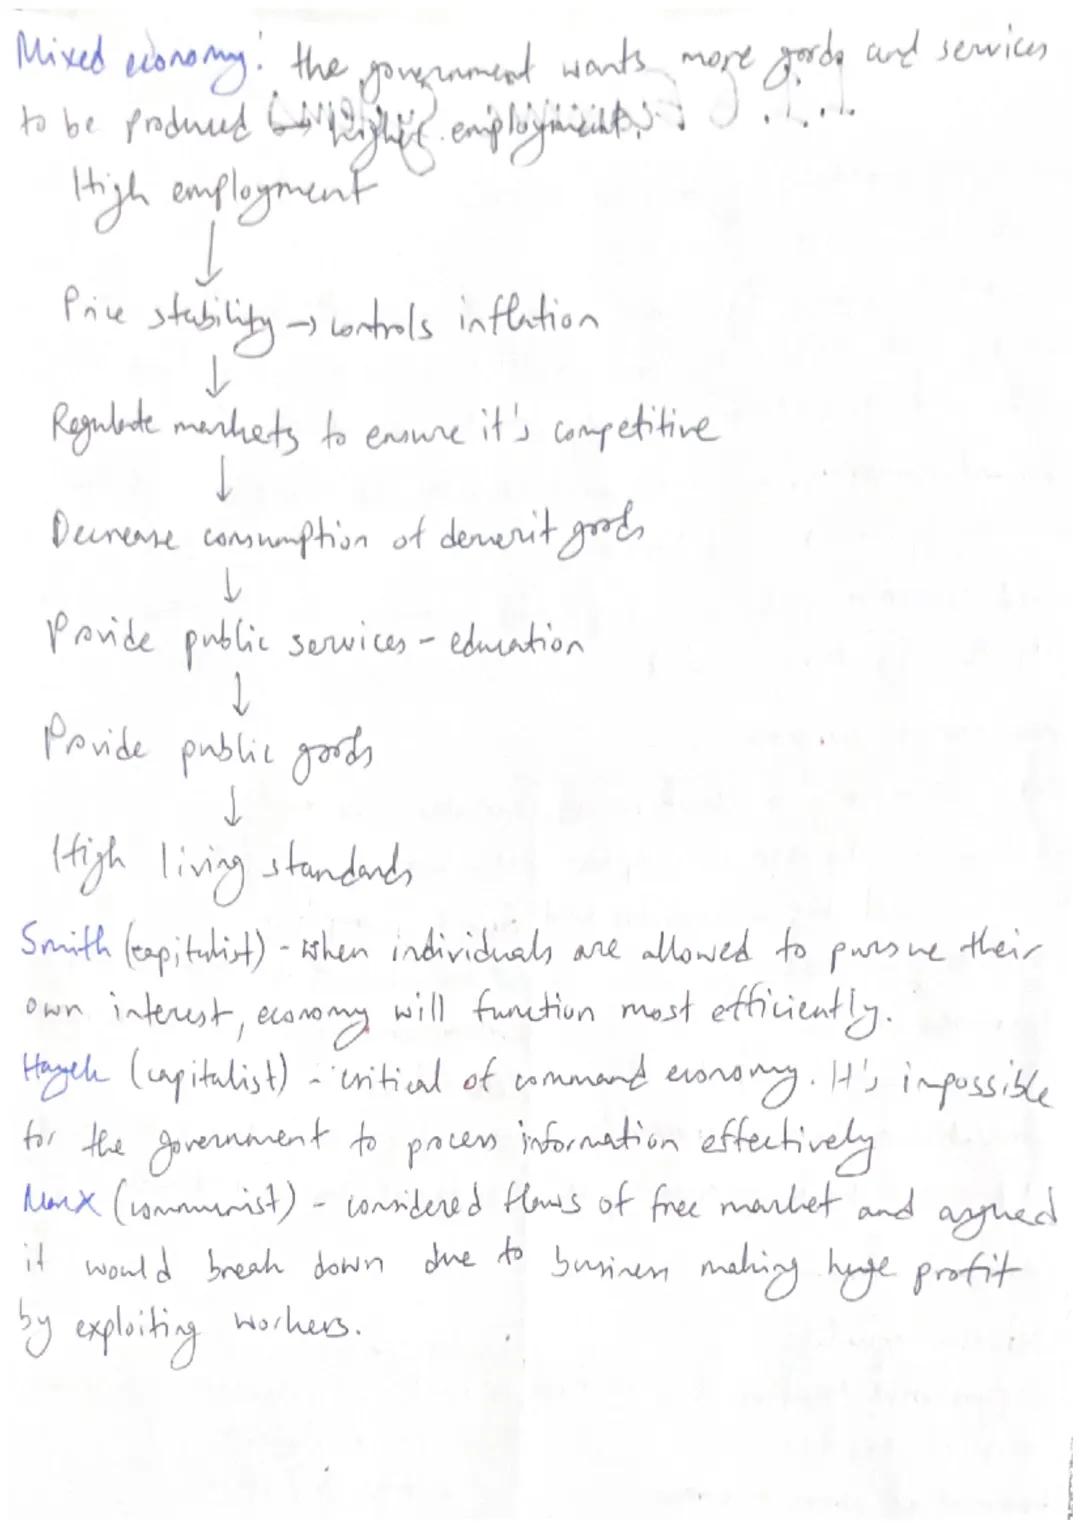 Mixed economy: the government wants more goods and services
to be produced → higher employment.
High employment
↓
Price stability → controls inflation
↓
Regulate markets to ensure it's competitive
↓
Decrease consumption of demerit goods
↓
Provide public services - education
↓
Provide public goods
↓
High living standards
Smith (capitalist) - when individuals are allowed to pursue their
own interest, economy will function most efficiently.
Hayek (capitalist) - critical of command economy. It's impossible
for the government to process information effectively
Marx (communist) - considered flaws of free market and argued
it would break down due to business making huge profit
by exploiting workers.